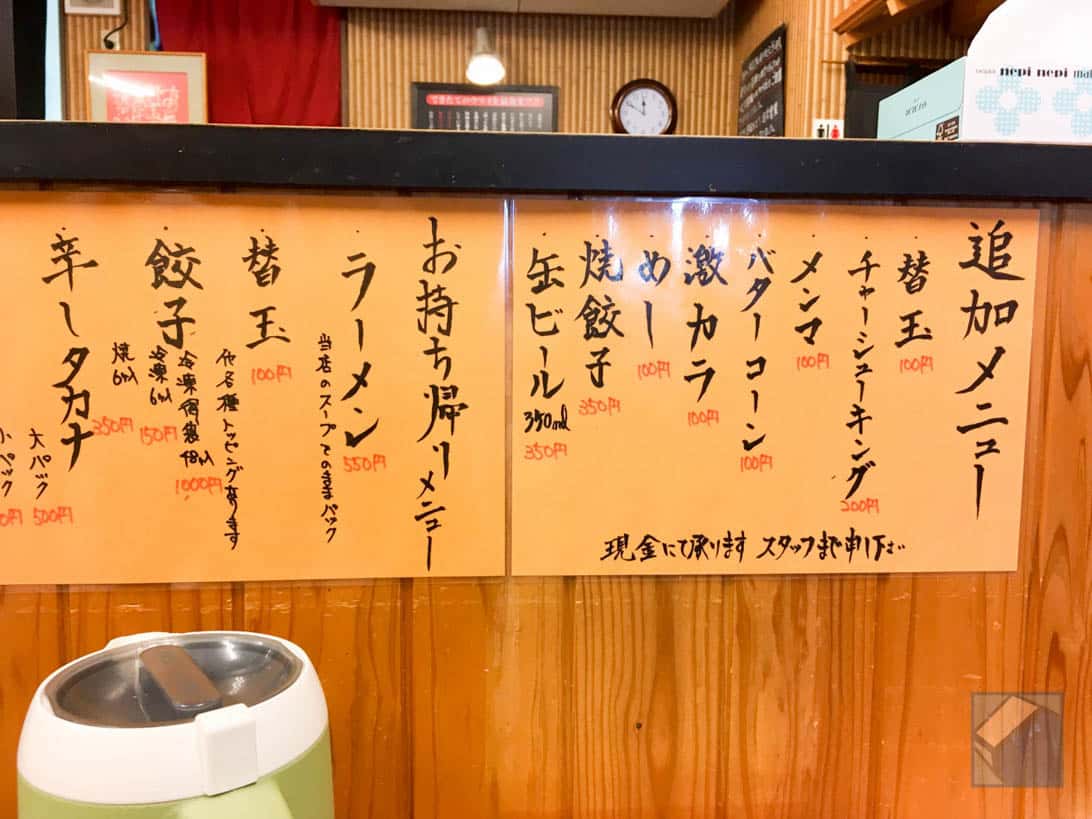 追加メニュー
・替玉
100円
・チャーシューキング
200円
・メンマ
100円
・バターコーン
100円
・激カラ
100円
・めし
100円
・焼餃子
350円
・缶ビール 350ml
350円
現金にて承ります スタッフまで申し下さい
お持ち帰りメニュー
・ラーメン
550円
当店のスープそのままパック
・替玉
100円
各種トッピングあります
・餃子
冷凍 48個
1000円
冷凍6個
150円
焼6個
350円
・辛しタカナ
大パック
500円
小パック
nepi nepi